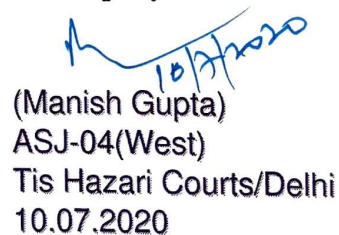 10/7/2020
(Manish Gupta)
ASJ-04(West)
Tis Hazari Courts/Delhi
10.07.2020